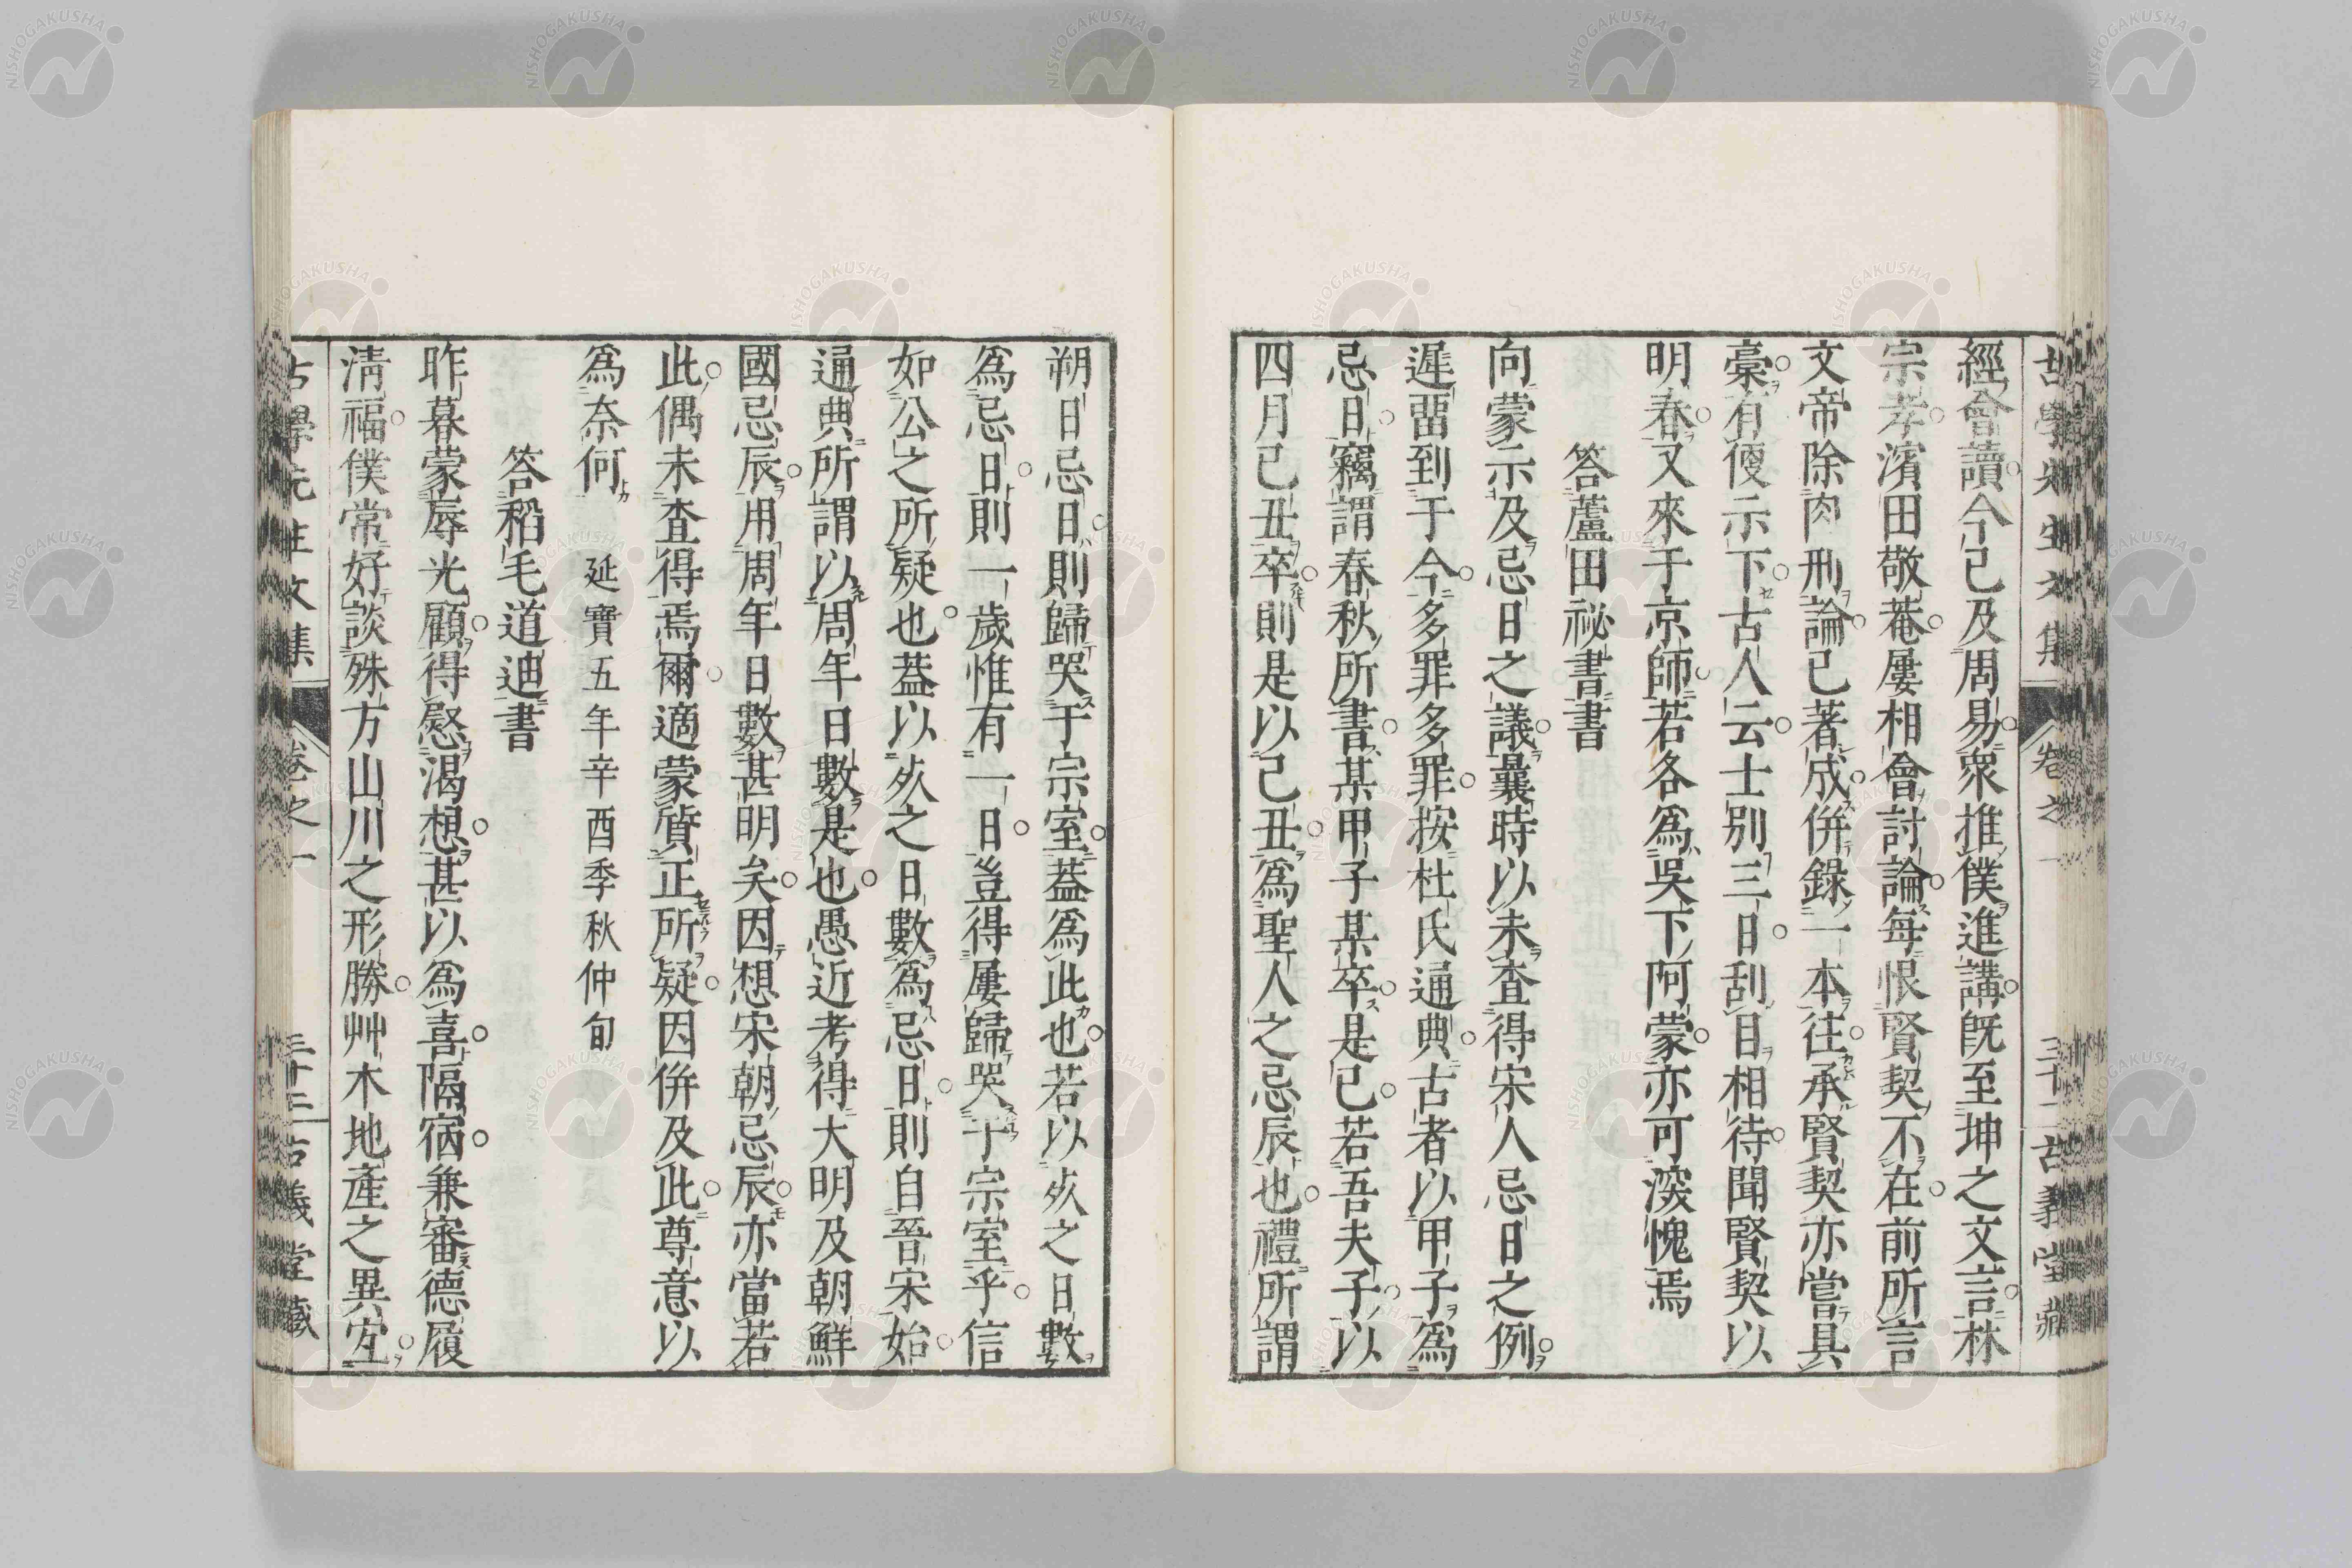 古學先生文集 卷之一 三十二 古義堂藏
經會讀今已及周易衆推僕進講既至坤之文言林
宗孝濱田敬菴屢相會討論每恨賢契不在前所言
文帝除肉刑論已著成併錄一本往承賢契亦嘗具
稾有便示下古人云士別三日刮目相待聞賢契以
明春又來于京師若各爲吳下阿蒙亦可深愧焉
答蘆田祕書書
向蒙示及忌日之議曩時以未查得宋人忌日之例
遲畱到于今多罪多罪按杜氏通典古者以甲子爲
忌日竊謂春秋所書某甲子某卒是已若吾夫子以
四月己丑卒則是以己丑爲聖人之忌辰也禮所謂
朔日忌日則歸哭于宗室葢爲此也若以歿之日數
爲忌日則一歲惟有一日豈得屢歸哭于宗室乎信
如公之所疑也葢以歿之日數爲忌日則自晉宋始
通典所謂以周年日數是也愚近考得大明及朝鮮
國忌辰用周年日數甚明矣因想宋朝忌辰亦當若
此偶未査得焉爾適蒙質正所疑因併及此尊意以
爲奈何 延寶五年辛酉季秋仲旬
答稻毛道迪書
昨暮蒙辱光顧得慰渴想甚以爲喜隔宿兼審德履
淸福僕常好談殊方山川之形勝艸木地產之異宐
古學先生文集 卷之一 三十三 古義堂藏
NISHOGAKUSHA